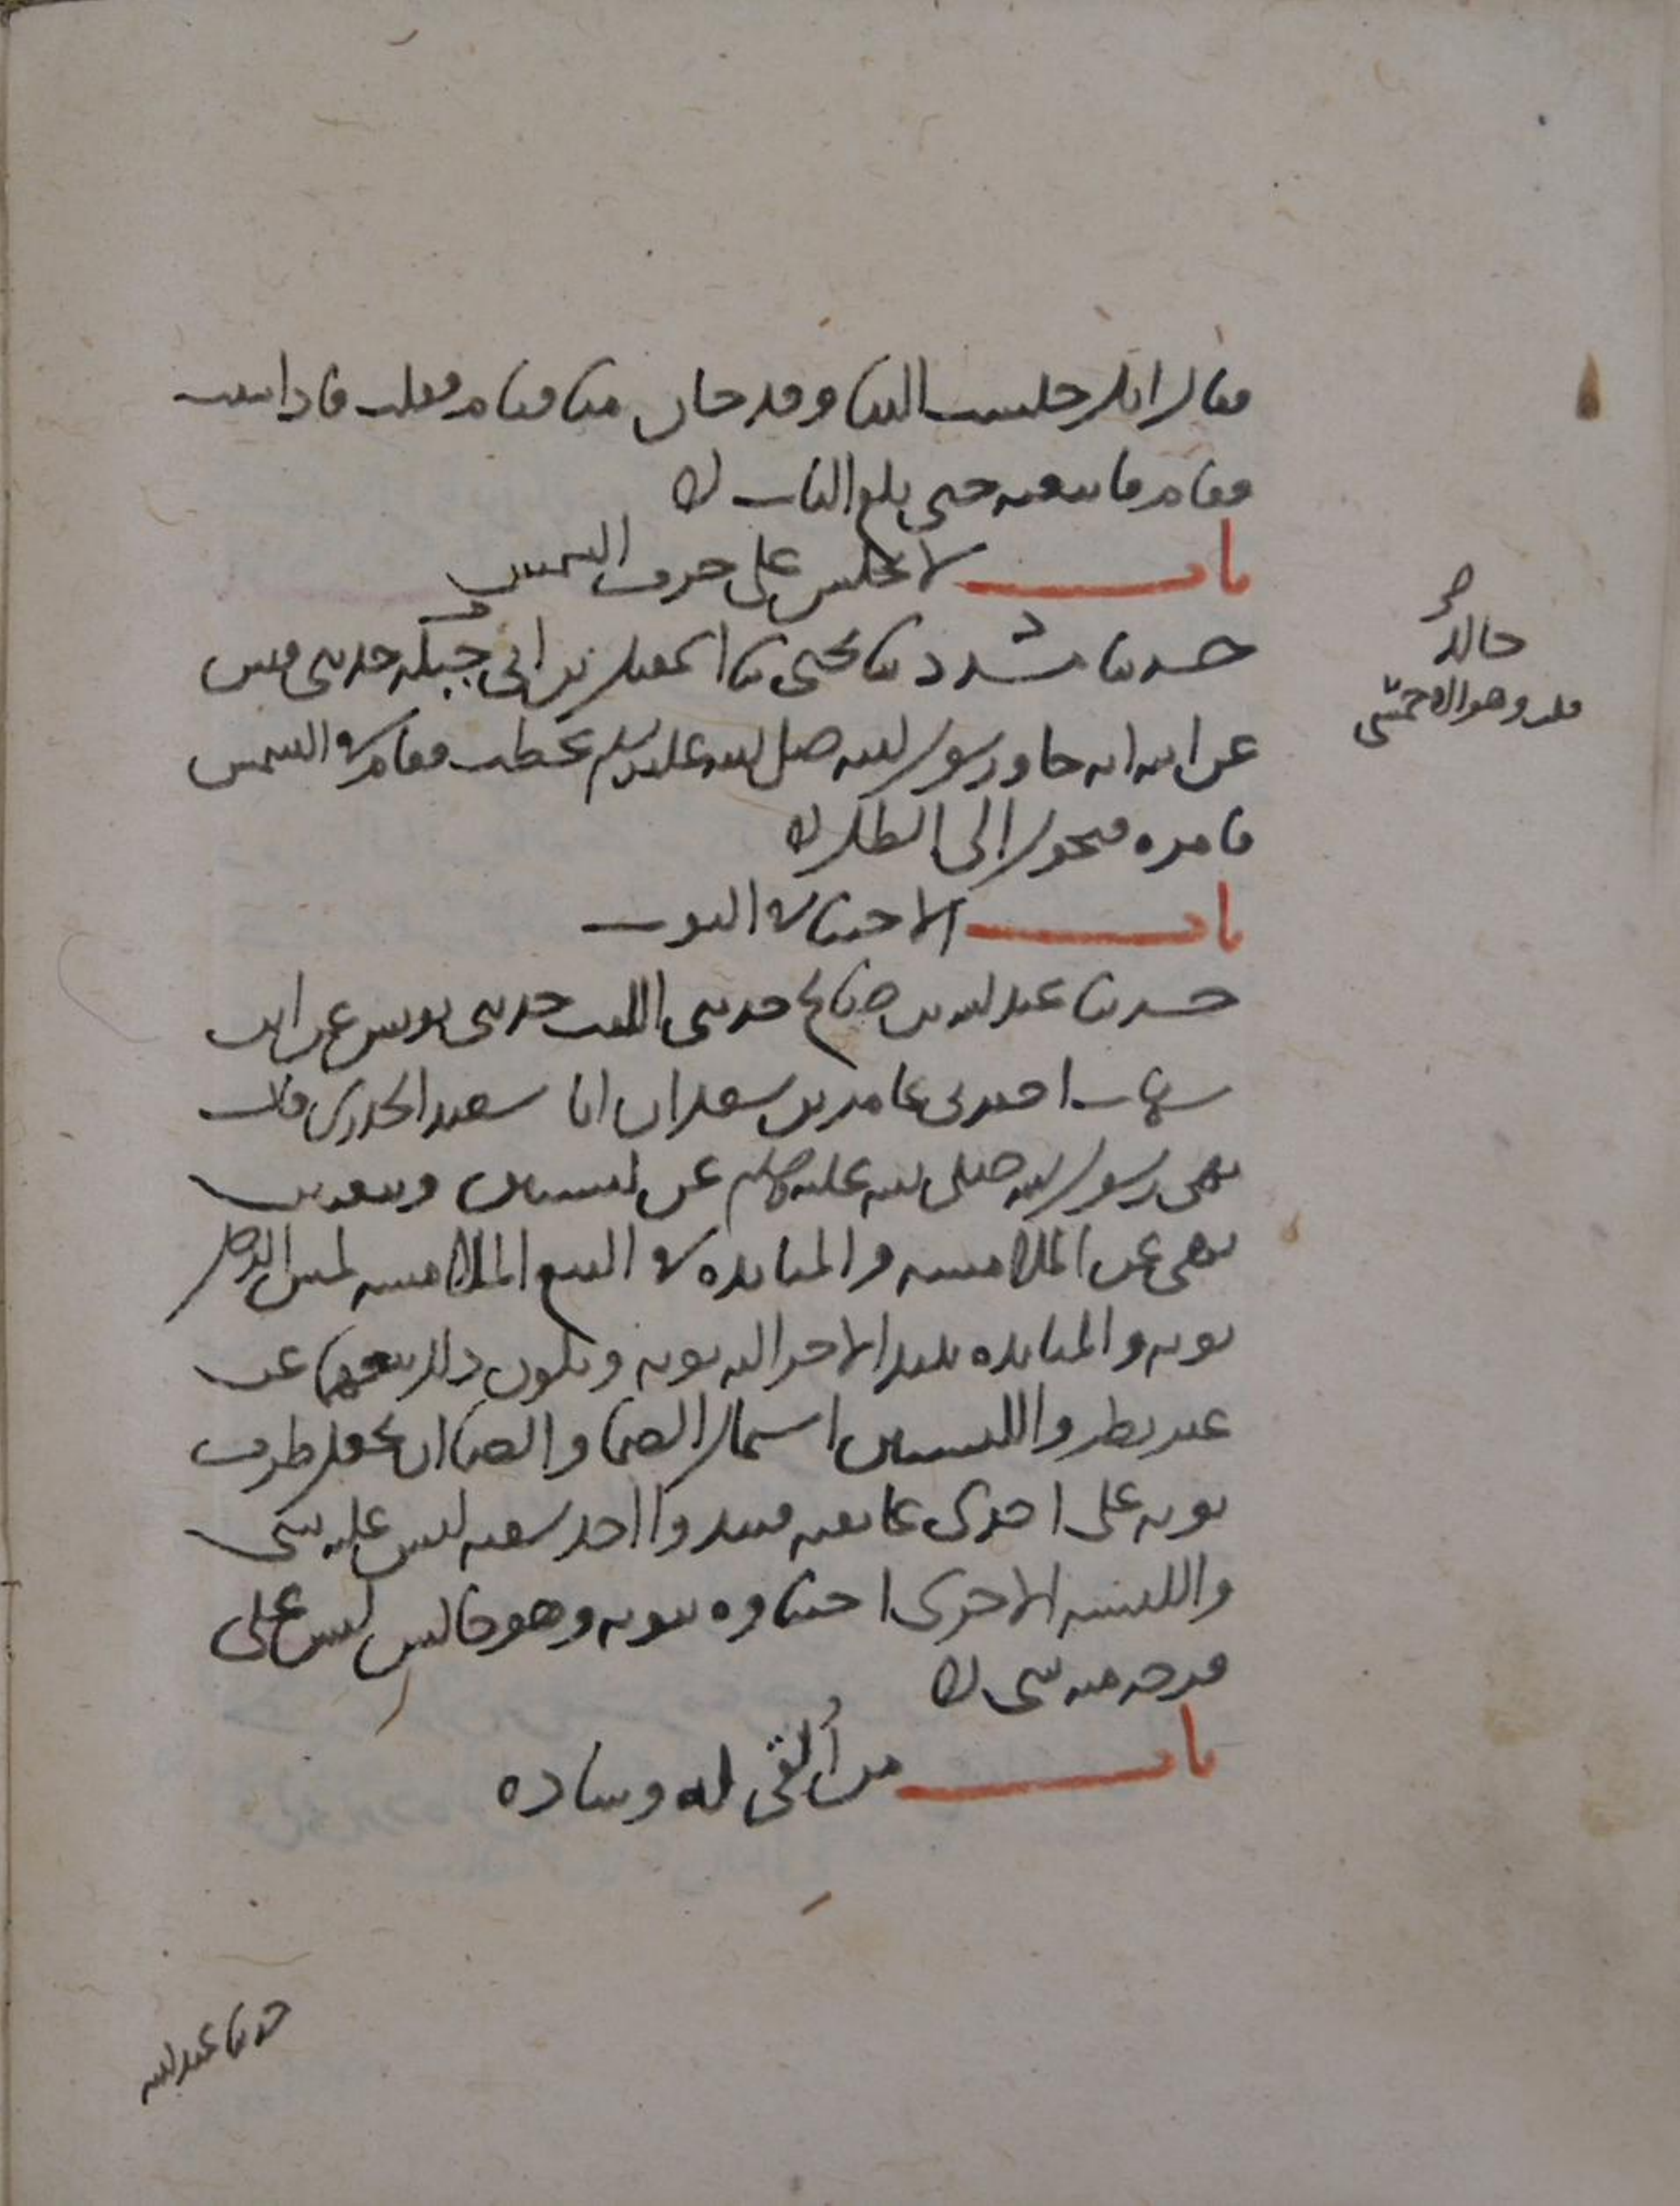 فقال انك جلست الينا وقد حان منا قيام فقلت فاذا شئت
فقام فاتبعته حتى بلغ الباب
باب لا يجلس على حرف الشمس
حدثنا مسدد ثنا يحيى ثنا اسمعيل بن ابي خالد حدثني قيس
عن ابيه انه جا ورسول الله صلى الله عليه وسلم يخطب فقام في الشمس
فامره فتحول الى الظل
باب الاحتبا في الثوب
حدثنا عبد الله بن صالح حدثني الليث حدثني يونس عن ابن
شهاب اخبرني عامر بن سعد ان ابا سعيد الخدري قال
نهى رسول الله صلى الله عليه وسلم عن لبستين وبيعتين
نهى عن الملامسه والمنابذه في البيع الملامسه لمس الرجل
ثوبه والمنابذه ينبذ الاخر اليه ثوبه ويكون ذلك بيعهما عن
غير نظر واللبستين اشتمال الصما والصما ان يجعل طرف
ثوبه على احدى عاتقيه فيبدوا احد شقيه ليس عليه شي
واللبسه الاخرى احتباوه بثوبه وهو جالس ليس على
فرجه منه شي
باب من ألقي له وساده
خالد
قلت وهو الاحمسي
حدثنا عبد الله